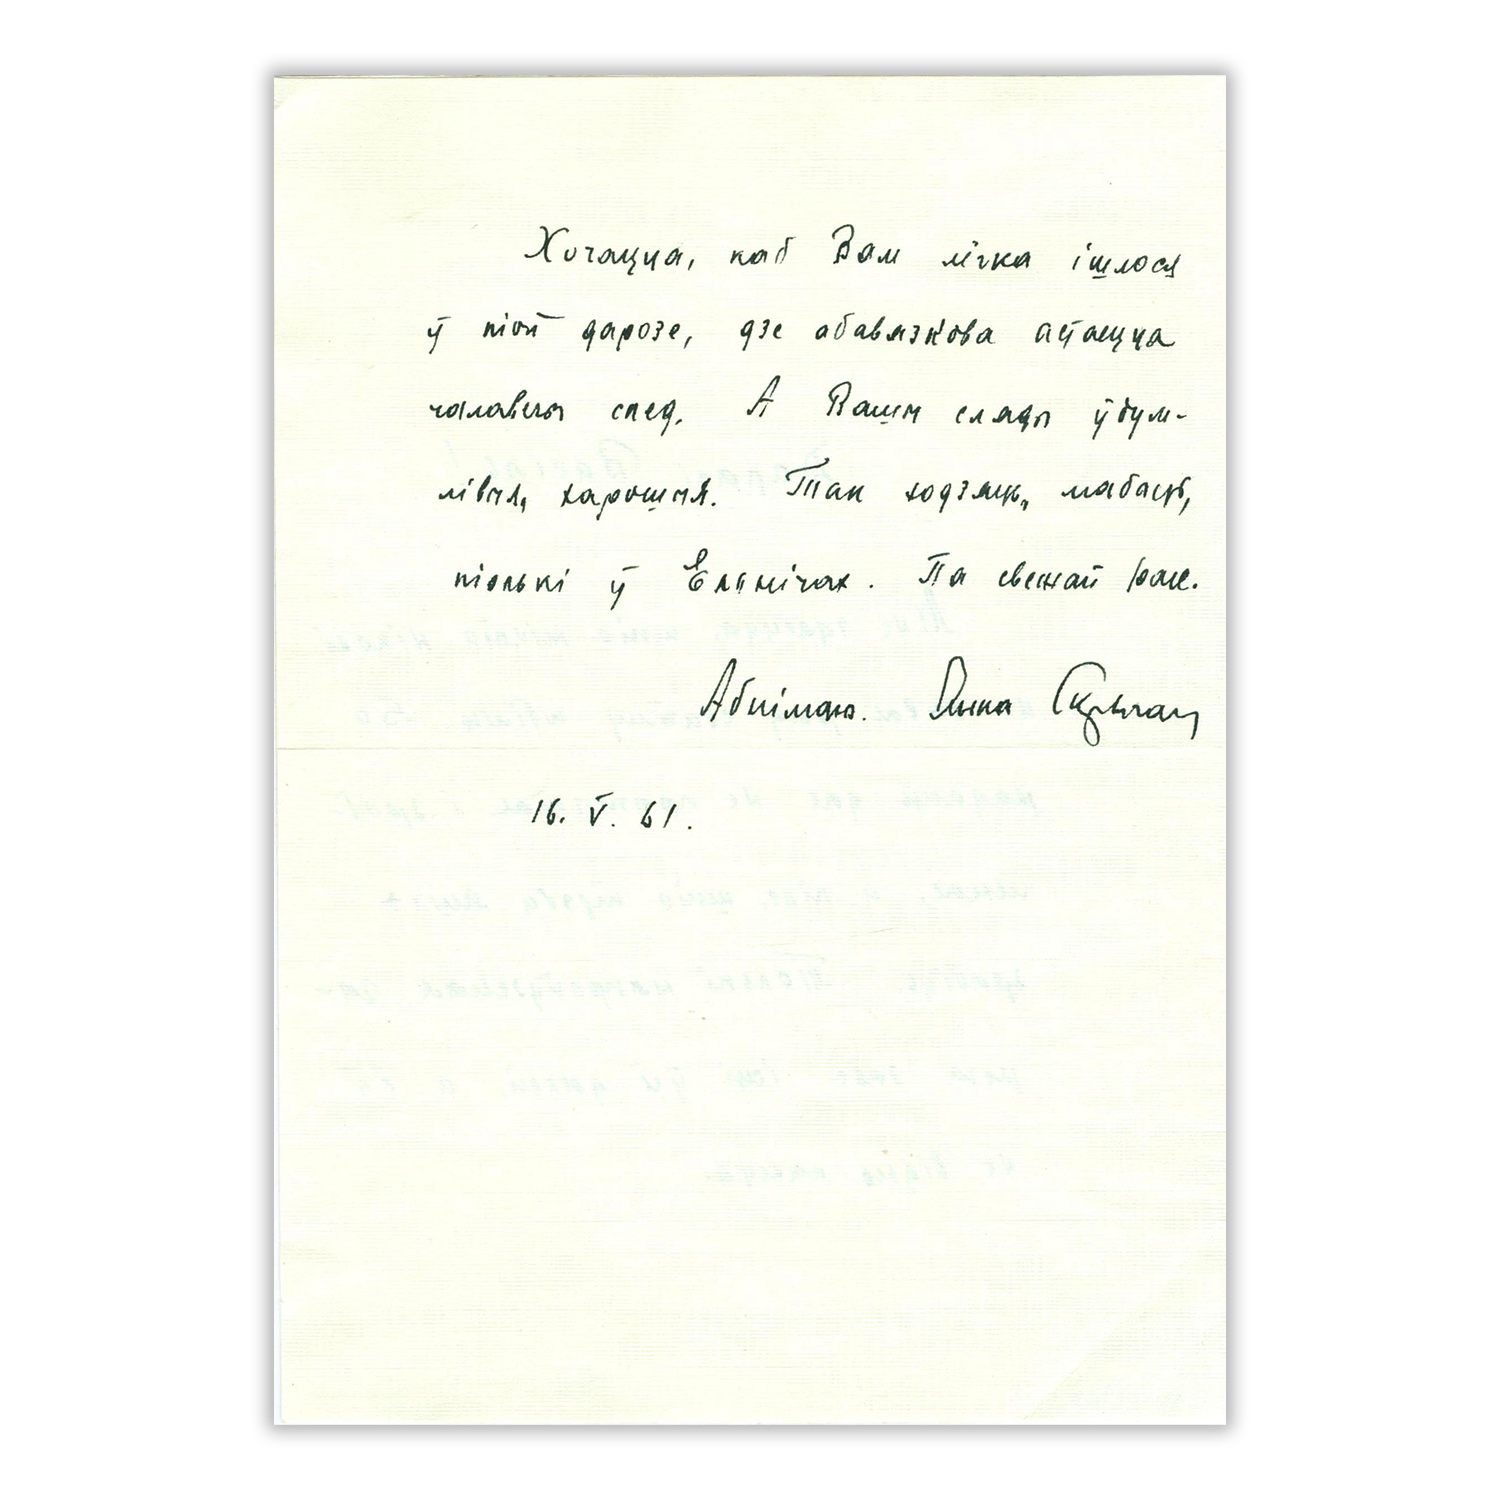 Хочацца, каб Вам лёгка ішлося
ў той дарозе, дзе абавязкова астаецца
чалавечы след. А Вашы сляды ўдум-
лівыя, харошыя. Так ходзяць, мабыць,
толькі ў . Па свежай расе.
Абнімаю. Янка Скрыган
16. V. 61.